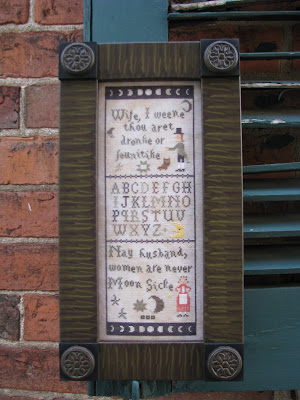 Wife, I weene
thou aret
dronke or
leunitike
ABCDEFGH
IJKLMNO
PQRSTUV
WXYZ
Nay husband,
women are never
Moon Sicke